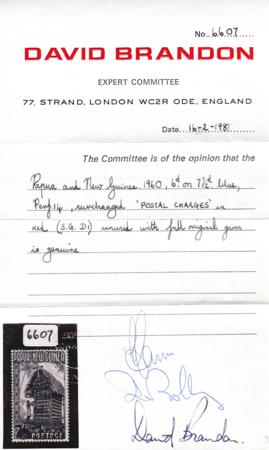 No. 6607
DAVID BRANDON
EXPERT COMMITTEE
77, STRAND, LONDON WC2R ODE, ENGLAND
Date 16-2-1981
The Committee is of the opinion that the
Papua and New Guinea 1960, 6d on 7½d blue,
Perf 14, surcharged 'POSTAL CHARGES' in
red (S.G. D1) unused with full original gum
is genuine
6607
PAPUA·NEW GUINEA
POSTAGE
David Brandon.